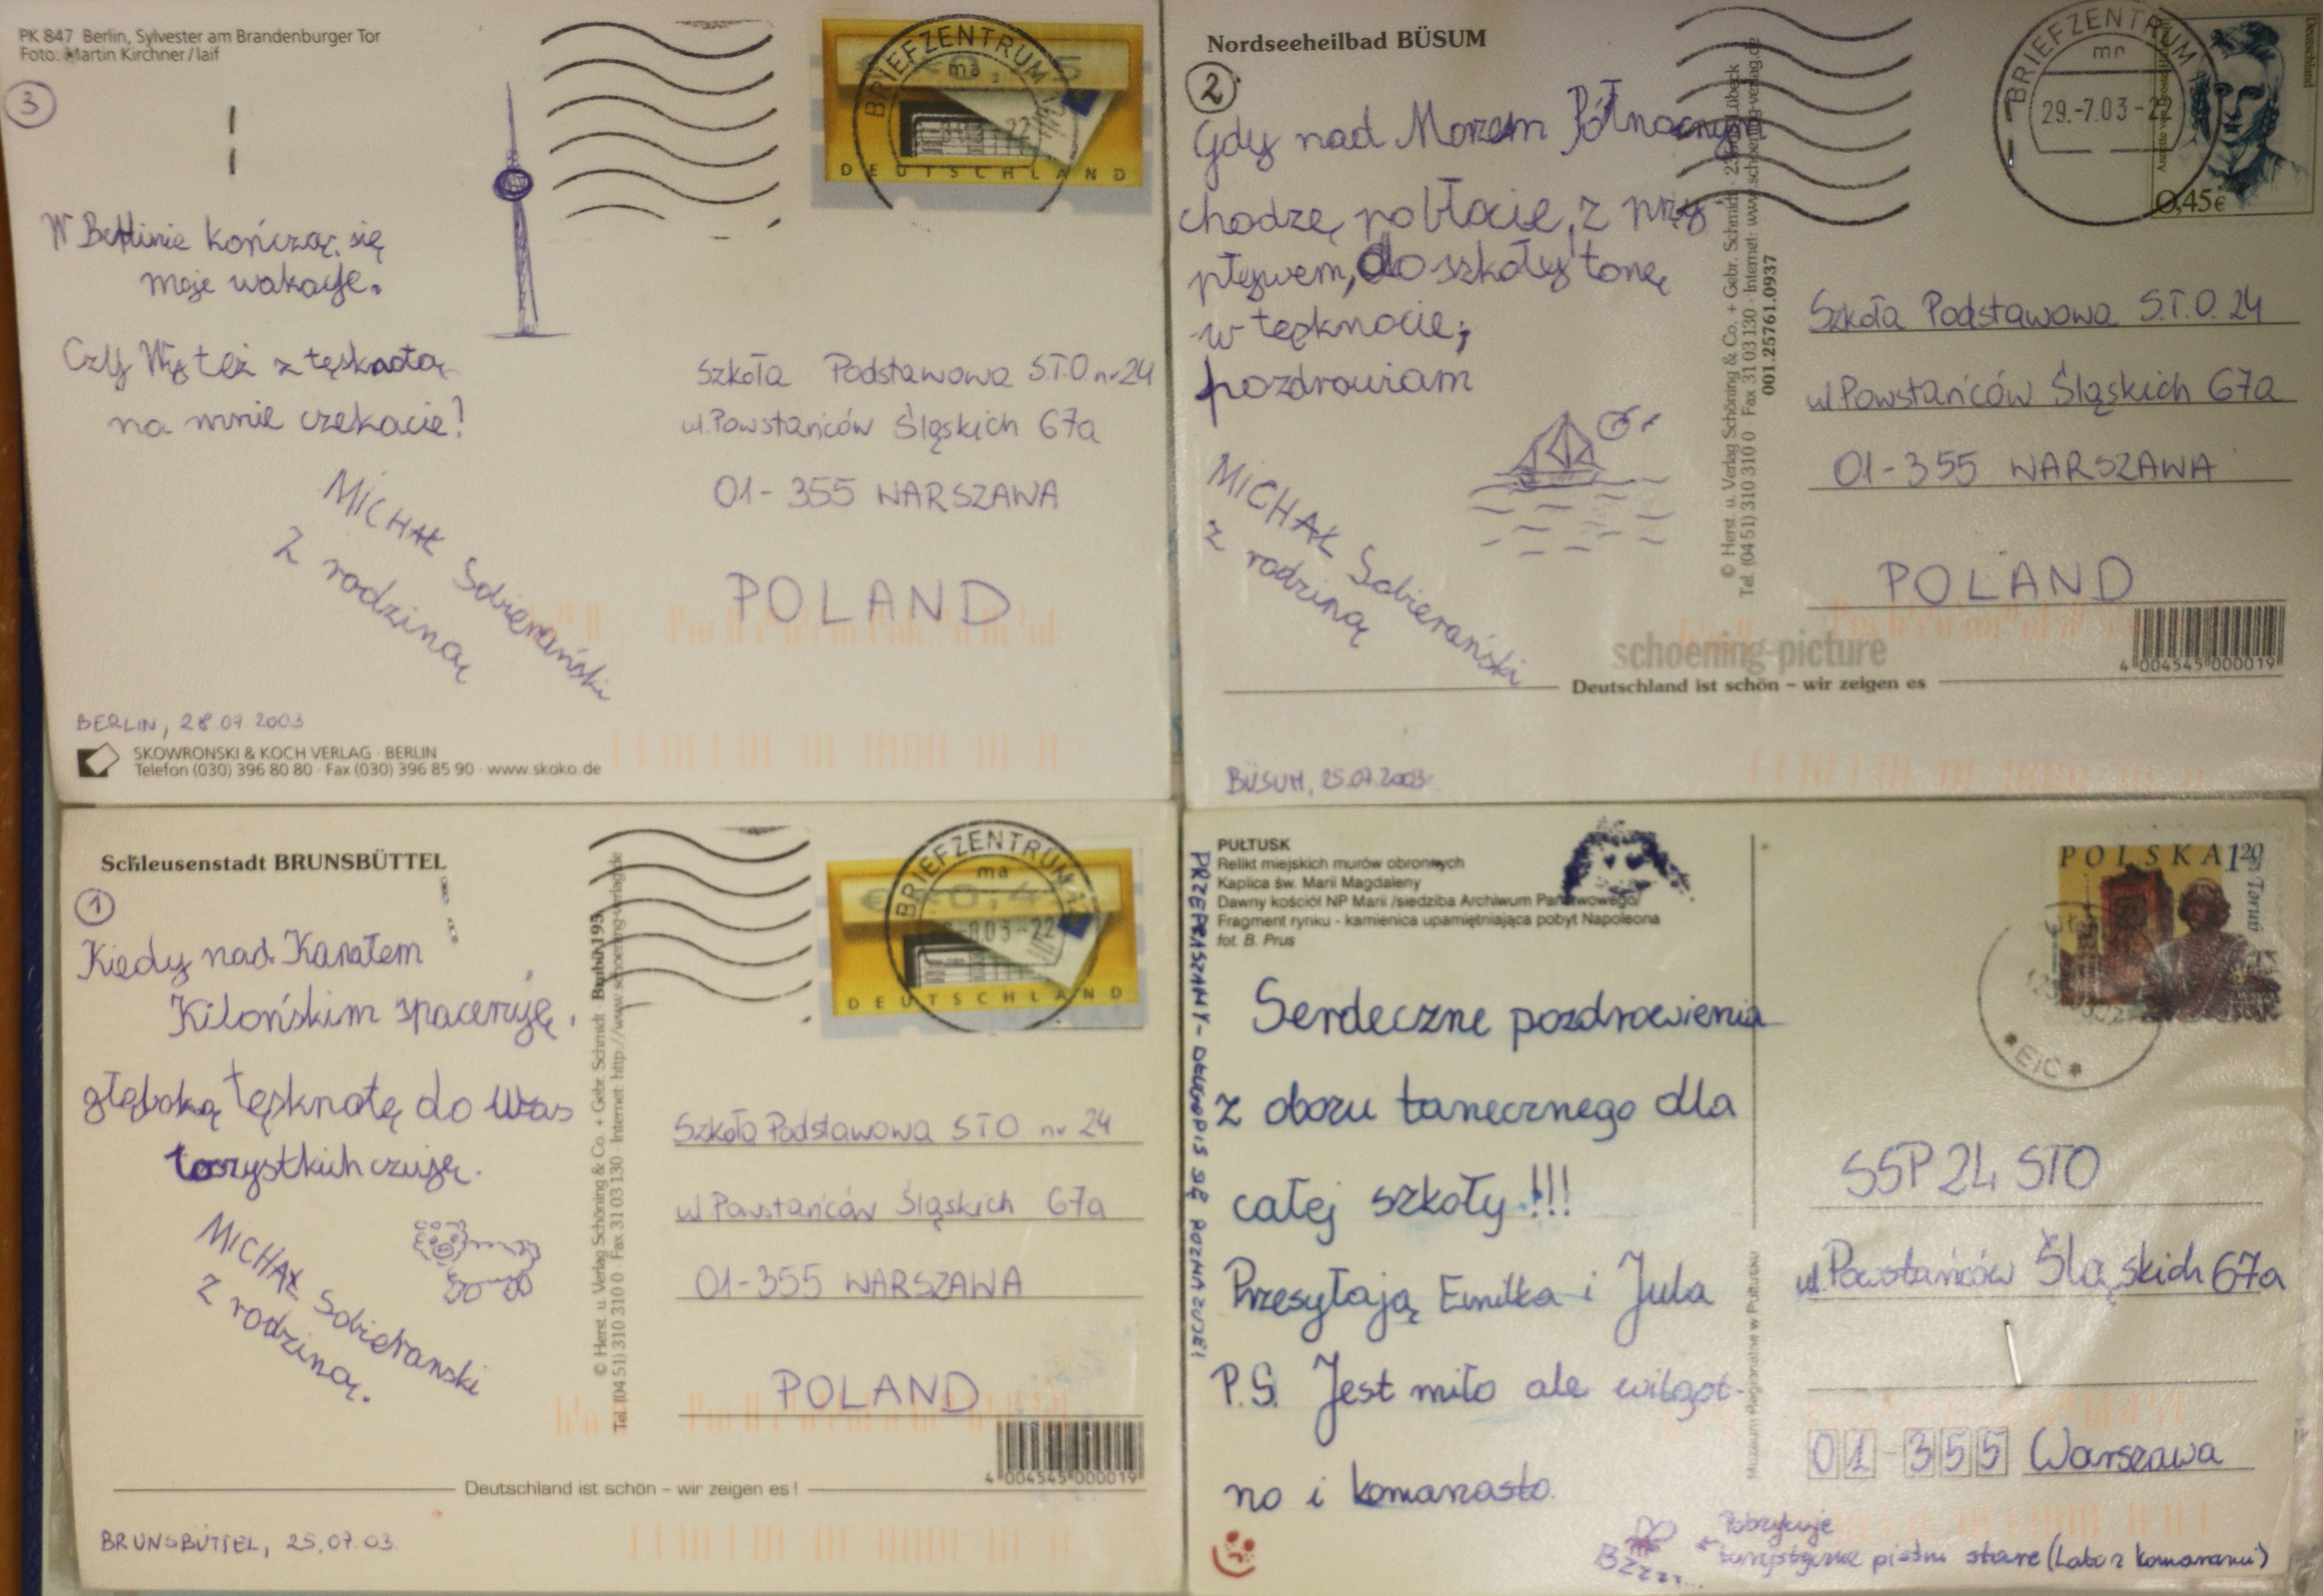 PK 847 Berlin, Sylvester am Brandenburger Tor
Foto: Martin Kirchner/laif
3
W Berlinie kończą się
moje wakacje.
Czy Wy też z tęsknotą
na mnie czekacie!
MICHAŁ Sobierański
z rodziną
BERLIN, 28.07.2003
SKOWRONSKI & KOCH VERLAG · BERLIN
Telefon (030) 396 80 80 · Fax (030) 396 85 90 · www.skoko.de
BRIEFZENTRUM
ma
DEUTSCHLAND
Szkoła Podstawowa S.T.O nr 24
ul. Powstańców Śląskich 67a
01-355 WARSZAWA
POLAND
Nordseeheilbad BÜSUM
2
Gdy nad Morzem Północnym
chodzę po błocie, z przy-
pływem, do szkoły tonę
w tęsknocie;
pozdrawiam
MICHAŁ Sobierański
z rodziną
BÜSUM, 25.07.2003
© Herst. u. Verlag Schöning & Co. + Gebr. Schmidt
Tel. (04 51) 310 310 0 · Fax 31 03 130 · Internet: www.schoening-verlag.de
001.25761.0937
BRIEFZENTRUM
mn
29.-7.03-22
Deutschland
0,45€
Szkoła Podstawowa S.T.O. 24
ul Powstańców Śląskich 67a
01-355 WARSZAWA
POLAND
schoening-picture
4 004545 000019
Deutschland ist schön – wir zeigen es
Schleusenstadt BRUNSBÜTTEL
1
Kiedy nad Kanałem
Kilońskim spaceruję,
głęboką tęsknotę do Was
wszystkich czuję.
MICHAŁ Sobierański
z rodziną.
© Herst. u. Verlag Schöning & Co. + Gebr. Schmidt
Tel. (04 51) 310 310 0 · Fax 31 03 130 · Internet: http://www.schoening-verlag.de
BRIEFZENTRUM
ma
DEUTSCHLAND
Szkoła Podstawowa STO. nr 24
ul Powstańców Śląskich 67a
01-355 WARSZAWA
POLAND
4 004545 000019
Deutschland ist schön – wir zeigen es!
BRUNSBÜTTEL, 25.07.03.
PUŁTUSK
Relikt miejskich murów obronnych
Kaplica św. Marii Magdaleny
Dawny kościół NP Marii /siedziba Archiwum Państwowego/
Fragment rynku - kamienica upamiętniająca pobyt Napoleona
fot. B. Prus
PRZEPRASZAMY - DŁUGOPIS SIĘ ROZMAZUJE!
Serdeczne pozdrowienia
z obozu tanecznego dla
całej szkoły!!!
Przesyłają Emilka i Jula
P.S. Jest miło ale wilgot-
no i komarzasto.
Muzeum Regionalne w Pułtusku
POLSKA 120
Toruń
SSP 24 STO
ul. Powstańców Śląskich 67a
01-355 Warszawa
Bzzzz...